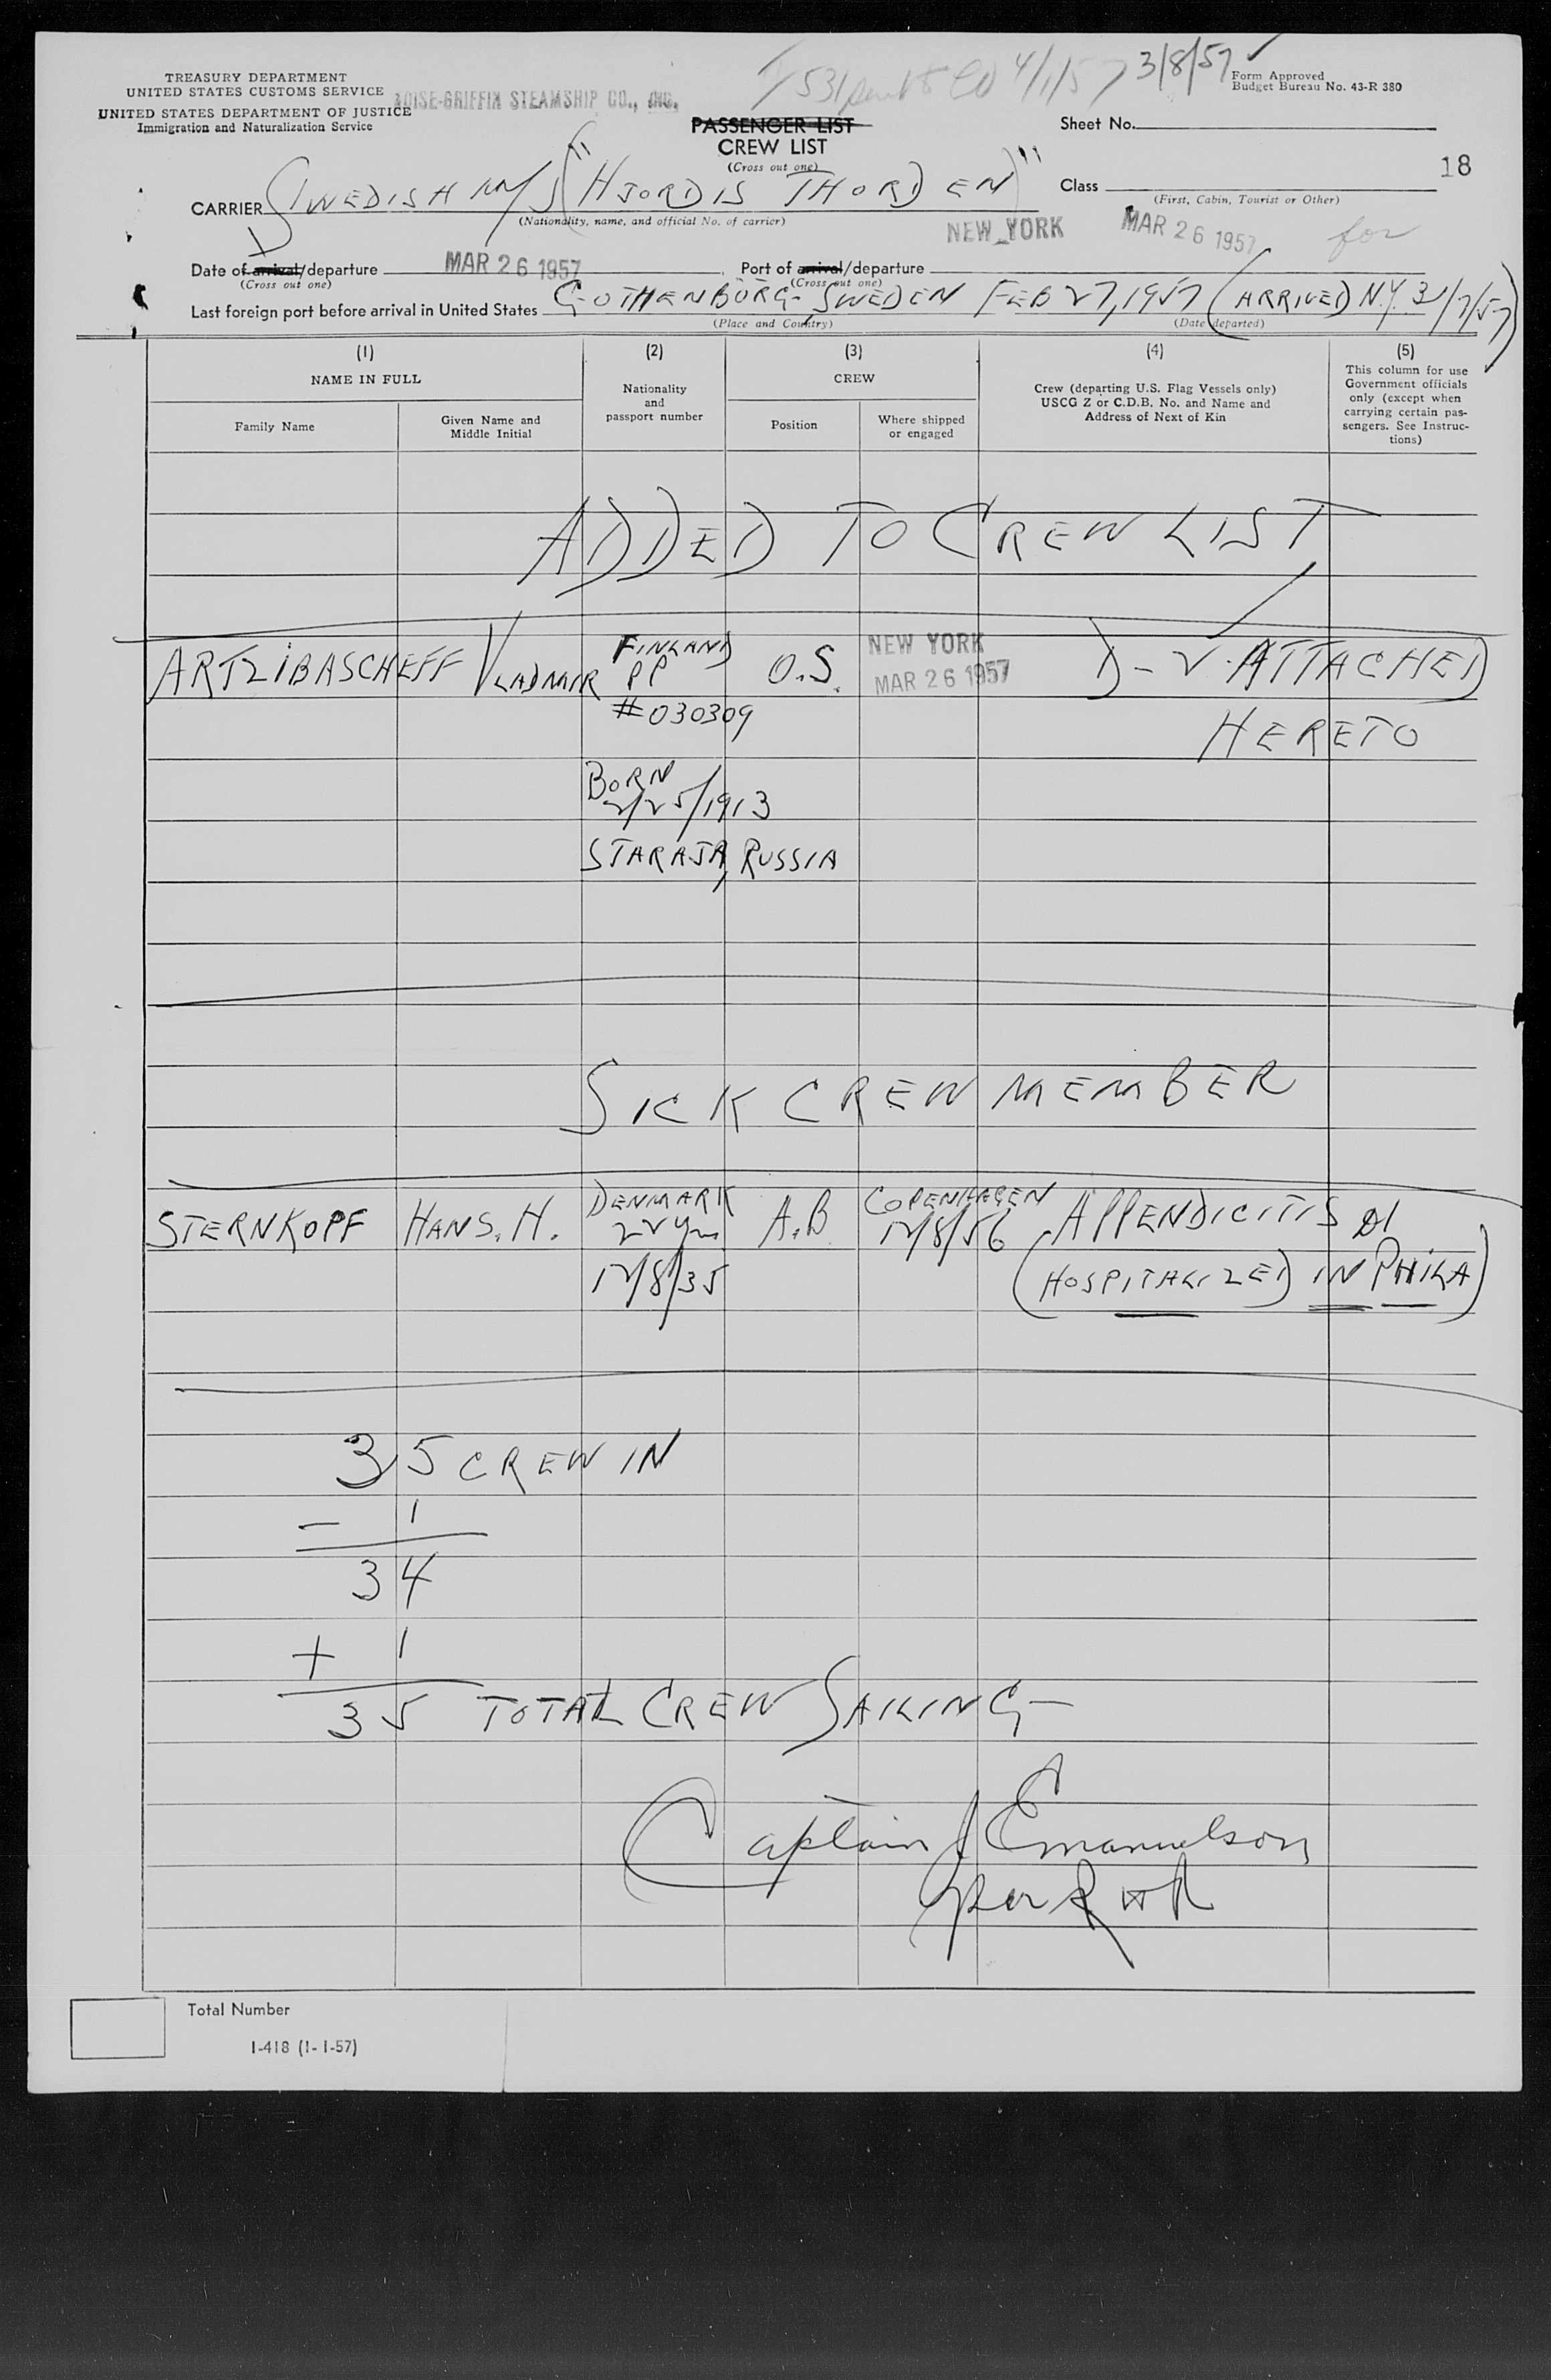 TREASURY DEPARTMENT
UNITED STATES CUSTOMS SERVICE
UNITED STATES DEPARTMENT OF JUSTICE
Immigration and Naturalization Service
-GRIFFIN STEAMSHIP CO., INC.
4/1/57 3/8/57
Form Approved
Budget Bureau No. 43-R 380
PASSENGER LIST
CREW LIST
(Cross out one)
Sheet No.
18
CARRIER SWEDISH M/S "HJORDIS THORDEN"
(Nationality, name, and official No. of carrier)
Class
(First, Cabin, Tourist or Other)
NEW YORK MAR 26 1957 for
Date of arrival/departure MAR 26 1957 Port of arrival/departure
(Cross out one) (Cross out one)
Last foreign port before arrival in United States GOTHENBURG- SWEDEN FEB 27, 1957 (ARRIVED N.Y. 3/7/57)
(Place and Country) (Date departed)
(1) (2) (3) (4) (5)
NAME IN FULL
Family Name
Given Name and
Middle Initial
Nationality
and
passport number
CREW
Position
Where shipped
or engaged
Crew (departing U.S. Flag Vessels only)
USCG Z or C.D.B. No. and Name and
Address of Next of Kin
This column for use
Government officials
only (except when
carrying certain pas-
sengers. See Instruc-
tions)
ADDED TO CREW LIST
ARTZIBASCHEFF VLADMIR FINLAND PP O.S. NEW YORK MAR 26 1957 D-V ATTACHED
#030309 HERETO
BORN
2/25/1913
STARAJA, RUSSIA
SICK CREW MEMBER
STERNKOPF HANS. H. DENMARK 22 yrs A.B. COPENHAGEN 12/8/56 APPENDICITIS
12/8/35 (HOSPITALIZED IN PHILA)
35 CREW IN
- 1
34
+ 1
35 TOTAL CREW SAILING-
Captain J Emanuelson
per
Total Number
I-418 (1-1-57)